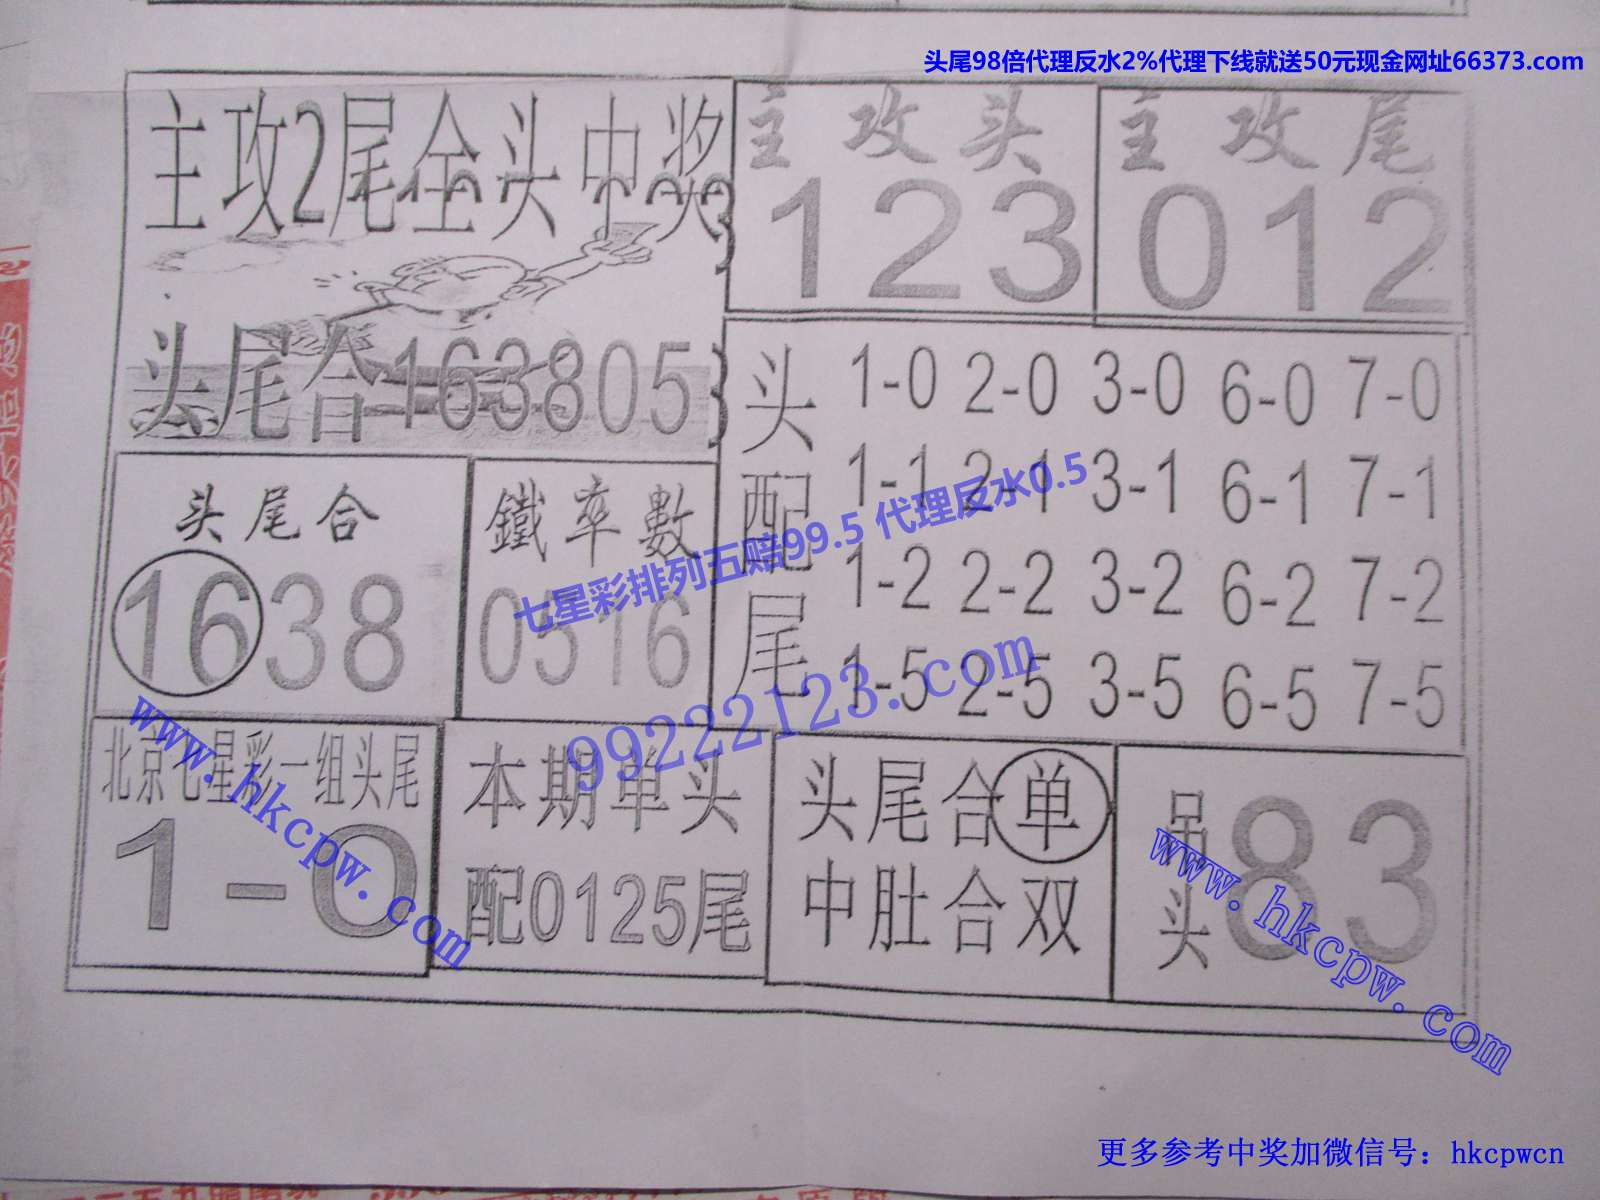 头尾98倍代理反水2%代理下线就送50元现金网址66373.com
主攻2尾全头中奖
主攻头
123
主攻尾
012
头尾合163805
头配尾
1-0 2-0 3-0 6-0 7-0
1-1 2-1 3-1 6-1 7-1
1-2 2-2 3-2 6-2 7-2
1-5 2-5 3-5 6-5 7-5
头尾合
1638
鐵率數
0516
七星彩排列五赔99.5 代理反水0.5
99222123.com
www.hkcpw.com
北京七星彩一组头尾
1-0
本期单头
配0125尾
头尾合单
中肚合双
吊头
83
www.hkcpw.com
更多参考中奖加微信号：hkcpwcn